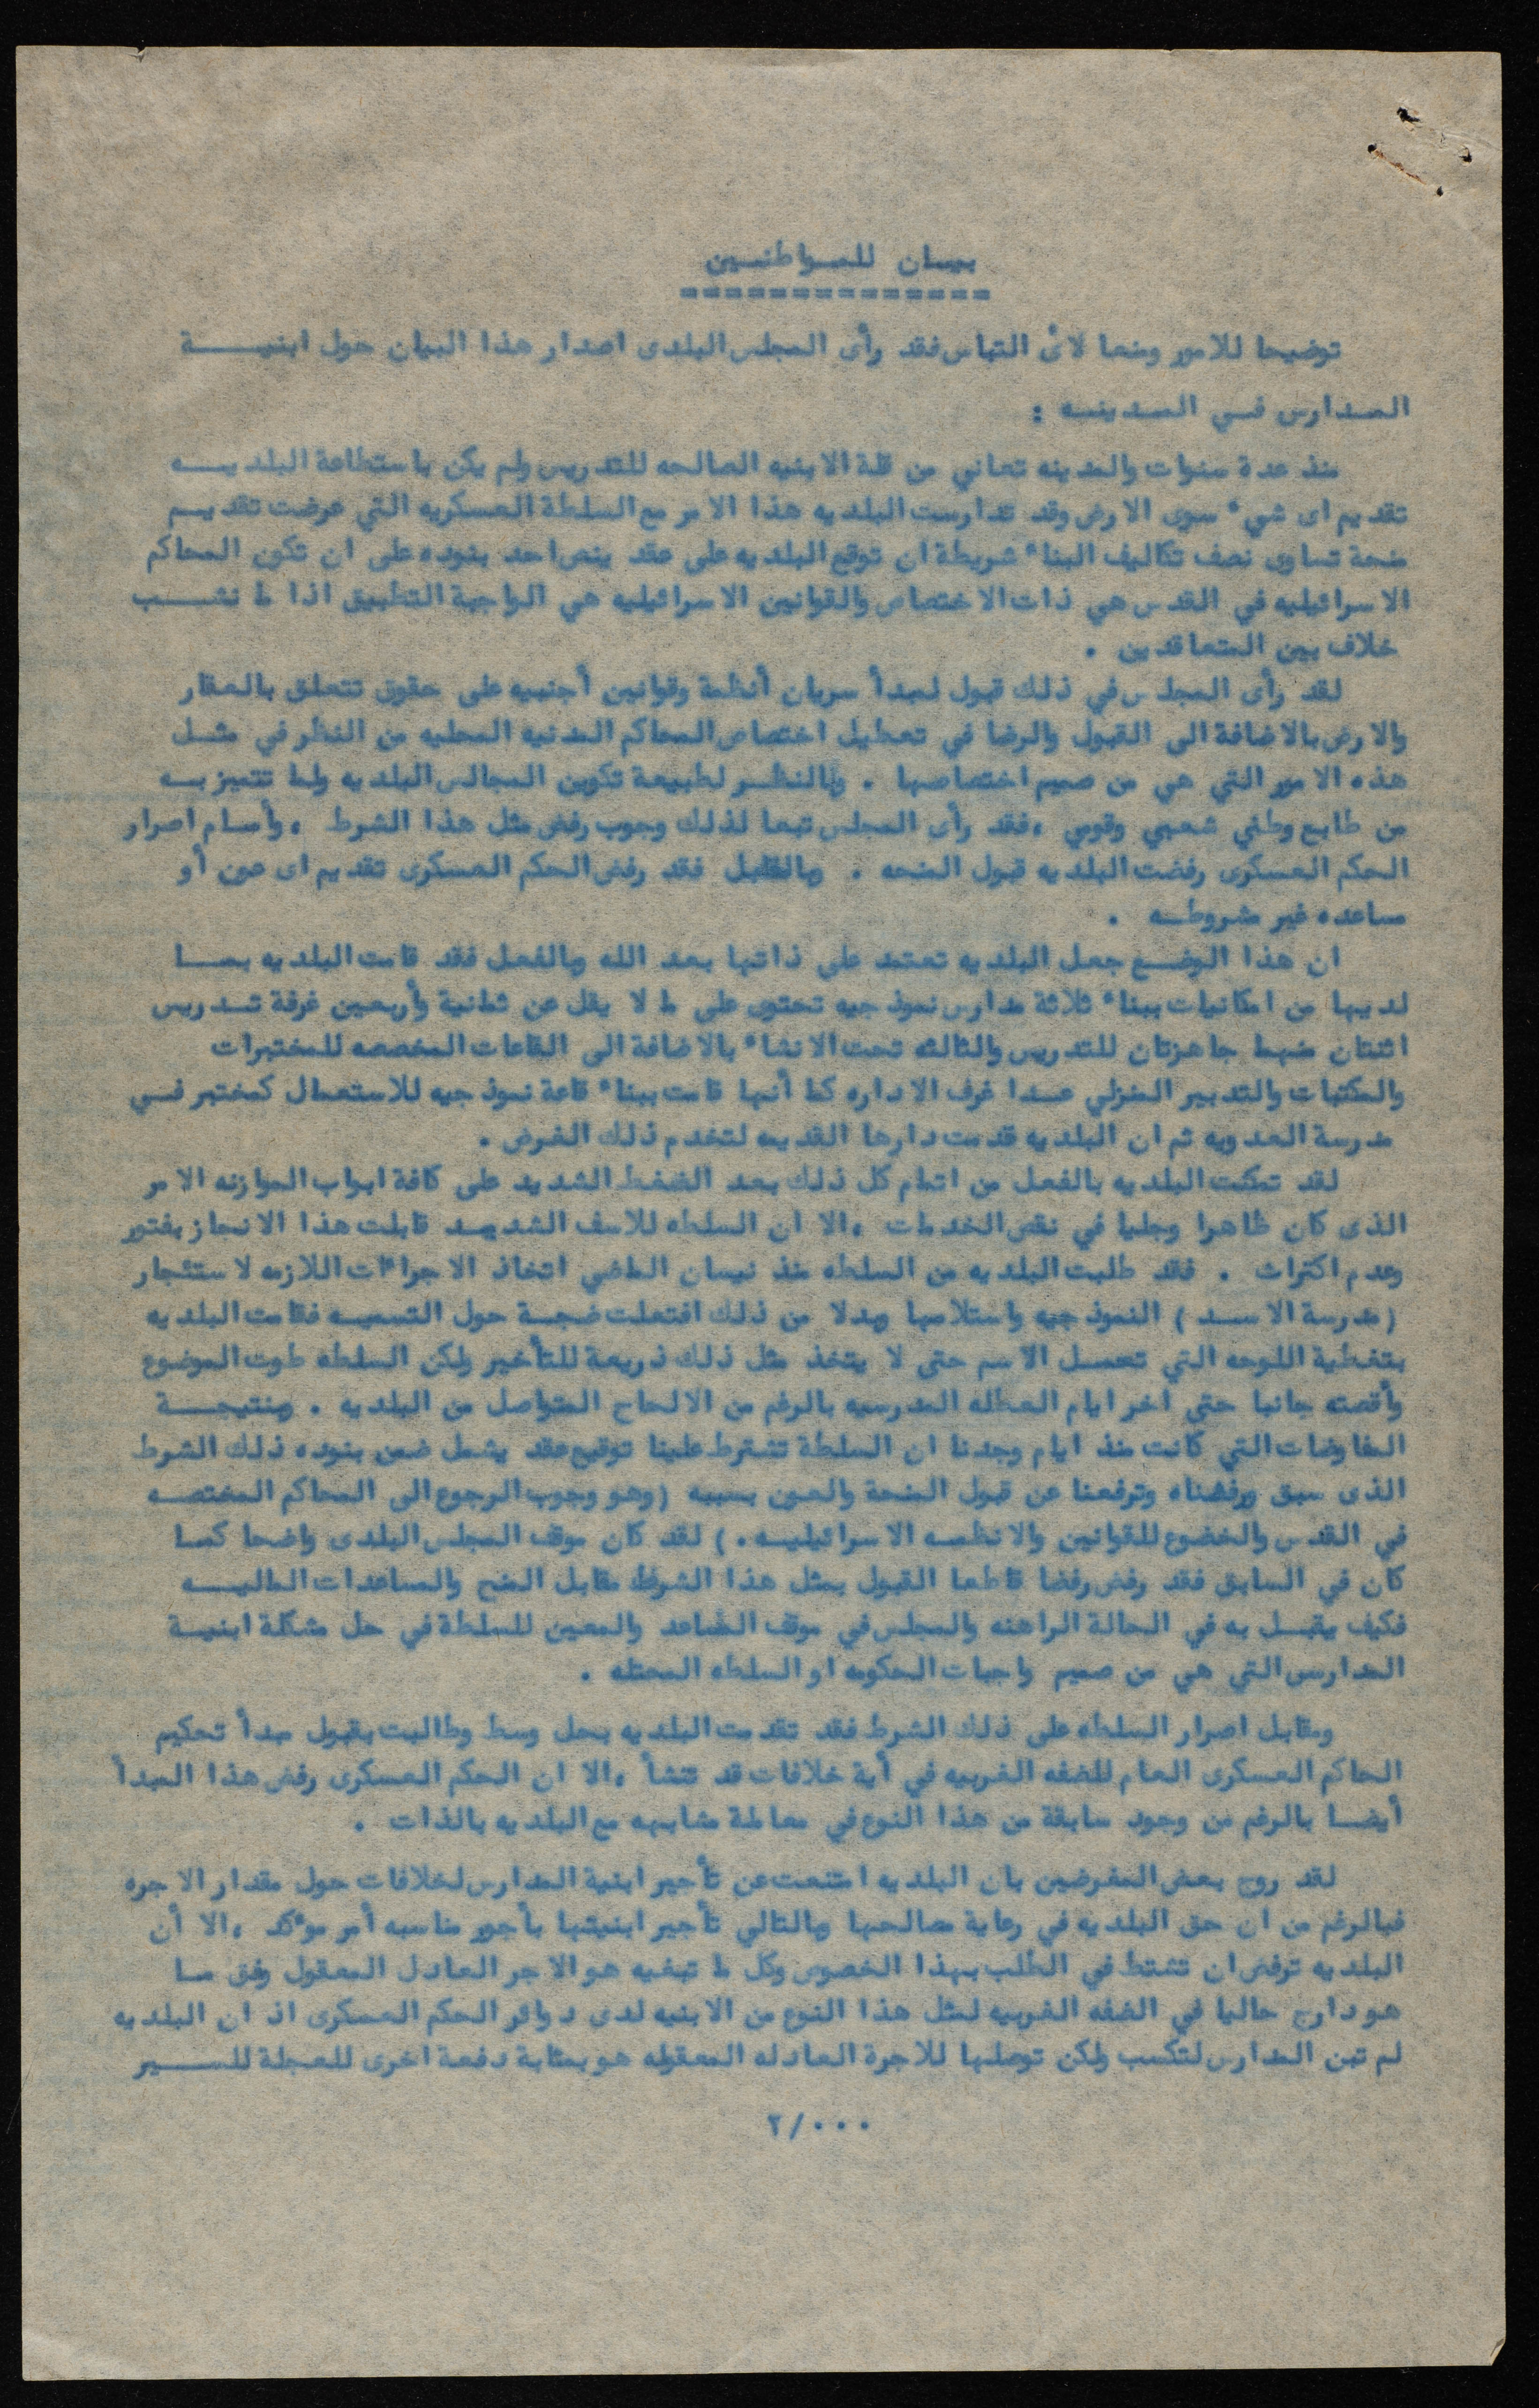 بيان للمواطنين
==============
توضيحا للامور ومنعا لائ التباس فقد رأى المجلس البلدى اصدار هذا البيان حول ابنيــــة
المدارس في المدينه :
منذ عدة سنوات والمدينه تعاني من قلة الابنيه الصالحه للتدريس ولم يكن باستطاعة البلديــه
تقديم اى شيء سوى الارض وقد تدارست البلديه هذا الامر مع السلطة العسكريه التي عرضت تقديـم
منحة تساوى نصف تكاليف البناء شريطة ان توقع البلديه على عقد ينص احد بنوده على ان تكون المحاكم
الاسرائيليه في القدس هي ذات الاختصاص والقوانين الاسرائيليه هي الواجبة التطبيق اذا ما نشــب
خلاف بين المتعاقدين .
لقد رأى المجلس في ذلك قبول لمبدأ سريان أنظمة وقوانين أجنبيه على حقوق تتعلق بالعقار
والارض بالاضافة الى القبول والرضا في تعطيل اختصاص المحاكم المدنيه المحليه من النظر في مثــل
هذه الامور التي هي من صميم اختصاصها . وبالنظـر لطبيعة تكوين المجالس البلديه ولما تتميز بــه
من طابع وطني شعبي وقومي ، فقد رأى المجلس تبعا لذلك وجوب رفض مثل هذا الشرط ، وأمـام اصرار
الحكم العسكرى رفضت البلديه قبول المنحه . وبالمقابل فقد رفض الحكم العسكرى تقديم اى عون أو
مساعده غير مشروطـه .
ان هذا الوضـع جعل البلديه تعتمد على ذاتها بعد الله وبالفعل فقد قامت البلديه بمــا
لديها من امكانيات ببناء ثلاثة مدارس نموذجيه تحتوى على ما لا يقل عن ثمانية وأربعين غرفة تــدريس
اثنتان منهما جاهزتان للتدريس والثالثه تحت الانشاء بالاضافة الى القاعات المخصصه للمختبرات
والمكتبات والتدبير المنزلي عــدا غرف الاداره كما أنها قامت ببناء قاعة نموذجيه للاستعمال كمختبر فــي
مدرسة العدويه ثم ان البلديه قدمت دارها القديمه لتخدم ذلك الغرض .
لقد تمكنت البلديه بالفعل من اتمام كل ذلك بعد الضغط الشديد على كافة ابواب الموازنه الامر
الذى كان ظاهرا وجليا في نقص الخدمات ، الا ان السلطه للاسف الشديـد قابلت هذا الانجاز بفتور
وعدم اكتراث . فقد طلبت البلديه من السلطه منذ نيسان الماضي اتخاذ الاجراءات اللازمه لاستئجار
( مدرسة الاســد ) النموذجيه واستلامها وبدلا من ذلك افتعلت ضجـة حول التسميــه فقامت البلديه
بتغطية اللوحه التي تحمــل الاسم حتى لا يتخذ مثل ذلك ذريعة للتأخير ولكن السلطه طوت الموضوع
وأقصته جانبا حتى اخر ايام العطله المدرسيه بالرغم من الالحاح المتواصل من البلديه . ونتيجـــة
المفاوضات التي كانت منذ ايام وجدنا ان السلطة تشترط علينا توقيع عقد يشمل ضمن بنوده ذلك الشرط
الذى سبق ورفضناه وترفعنا عن قبول المنحة والعــون بسببه ( وهو وجوب الرجوع الى المحاكم المختصــه
في القدس والخضوع للقوانين والانظمــه الاسرائيليــه . ) لقد كان موقف المجلس البلدى واضحا كمــا
كان في السابق فقد رفض رفضا قاطعا القبول بمثل هذا الشرط مقابل المنح والمساعدات الماليــه
فكيف يقبــل به في الحالة الراهنه والمجلس في موقف المساعد والمعين للسلطة في حل مشكلة ابنيــة
المدارس التي هي من صميم واجبات الحكومه او السلطه المحتله .
ومقابل اصرار السلطه على ذلك الشرط فقد تقدمت البلديه بحل وسط وطالبت بقبول مبدأ تحكيم
الحاكم العسكرى العام للضفه الغربيه في أية خلافات قد تنشأ ، الا ان الحكم العسكرى رفض هذا المبدأ
أيضــا بالرغم من وجود سابقة من هذا النوع في معاملة مشابهه مع البلديه بالذات .
لقد روج بعض المغرضين بان البلديه امتنعت عن تأجير ابنية المدارس لخلافات حول مقدار الاجره
فبالرغم من ان حق البلديه في رعاية مصالحها وبالتالي تأجير ابنيتها بأجور مناسبه أمر موءكد ، الا أن
البلديه ترفض ان تشتط في الطلب بهذا الخصوص وكل ما تبغيه هو الاجر العادل المعقول وفق مــا
هو دارج حاليا في الضفه الغربيه لمثل هذا النوع من الابنيه لدى دوائر الحكم العسكرى اذ ان البلديه
لم تبن المدارس لتكسب ولكن توصلها للاجرة العادله المعقوله هو بمثابة دفعة اخرى للعجلة للــسير
٢/٠٠٠